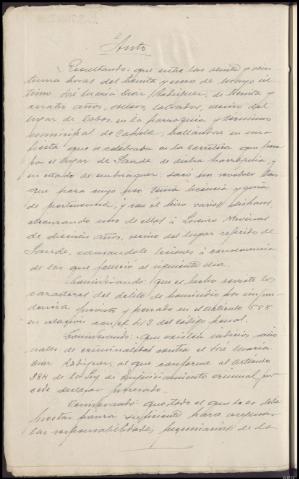 Auto
Resultando: que entre las veinte y vein
tiuna horas del treinta y uno de Mayo úl
timo José María Rodríguez, de treinta y
cuatro años, soltero, labrador, vecino del
lugar de en la parroquia y término
municipal de hallándose en una
fiesta que se celebraba en la carretera que pasa
por el lugar de Sande de dicha parroquia, y
en estado de embriaguez, sacó un revólver
que para cuyo uso tenía licencia y guía
de pertenencia, y con él hizo varios disparos
alcanzando uno de ellos á
de años, vecino del lugar referido de
Sande, causándole lesiones á consecuencia
de las que falleció al siguiente día.
Considerando: Que el hecho reviste los
caracteres del delito de homicidio por impru
dencia previsto y penado en el artículo
en relación con el del código penal.
Considerando: Que existen indicios racio
nales de criminalidad contra el José María
Rodríguez, al que conforme al artículo
384 de la Ley de Enjuiciamiento criminal pro
cede declarar procesado.
Considerando: que todo el que lo es debe
prestar fianza suficiente para asegurar
las responsabilidades pecuniarias de la